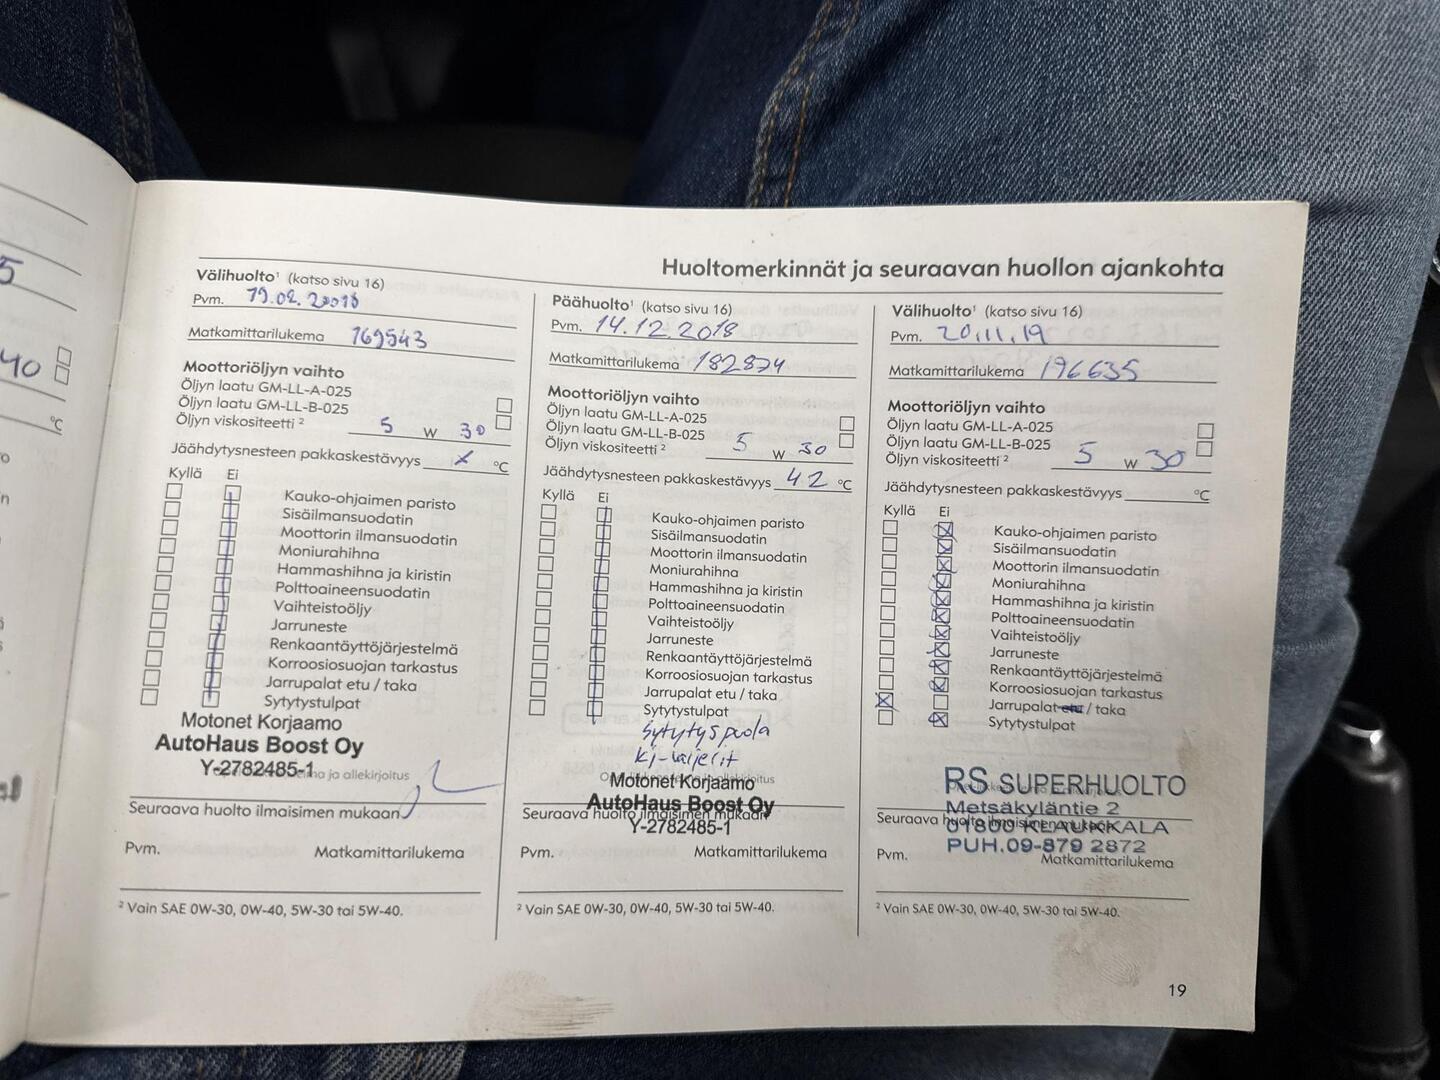 5
40
°C
Huoltomerkinnät ja seuraavan huollon ajankohta
Välihuolto¹ (katso sivu 16)
Pvm. 19.02.20018
Matkamittarilukema 169543
Moottoriöljyn vaihto
Öljyn laatu GM-LL-A-025
Öljyn laatu GM-LL-B-025
Öljyn viskositeetti ² 5 W 30
Jäähdytysnesteen pakkaskestävyys x °C
Kyllä Ei
Kauko-ohjaimen paristo
Sisäilmansuodatin
Moottorin ilmansuodatin
Moniurahihna
Hammashihna ja kiristin
Polttoaineensuodatin
Vaihteistoöljy
Jarruneste
Renkaantäyttöjärjestelmä
Korroosiosuojan tarkastus
Jarrupalat etu / taka
Sytytystulpat
Motonet Korjaamo
AutoHaus Boost Oy
Y-2782485-1
ja allekirjoitus
Seuraava huolto ilmaisimen mukaan
Pvm. Matkamittarilukema
² Vain SAE 0W-30, 0W-40, 5W-30 tai 5W-40.
Päähuolto¹ (katso sivu 16)
Pvm. 14.12.2018
Matkamittarilukema 182874
Moottoriöljyn vaihto
Öljyn laatu GM-LL-A-025
Öljyn laatu GM-LL-B-025
Öljyn viskositeetti ² 5 W 30
Jäähdytysnesteen pakkaskestävyys 42 °C
Kyllä Ei
Kauko-ohjaimen paristo
Sisäilmansuodatin
Moottorin ilmansuodatin
Moniurahihna
Hammashihna ja kiristin
Polttoaineensuodatin
Vaihteistoöljy
Jarruneste
Renkaantäyttöjärjestelmä
Korroosiosuojan tarkastus
Jarrupalat etu / taka
Sytytystulpat
Sytytyspuola
Kj-vaijerit
Motonet Korjaamo
AutoHaus Boost Oy
Seuraava huolto ilmaisimen mukaan
Y-2782485-1
Pvm. Matkamittarilukema
² Vain SAE 0W-30, 0W-40, 5W-30 tai 5W-40.
Välihuolto¹ (katso sivu 16)
Pvm. 20.11.19
Matkamittarilukema 196635
Moottoriöljyn vaihto
Öljyn laatu GM-LL-A-025
Öljyn laatu GM-LL-B-025
Öljyn viskositeetti ² 5 W 30
Jäähdytysnesteen pakkaskestävyys °C
Kyllä Ei
Kauko-ohjaimen paristo
Sisäilmansuodatin
Moottorin ilmansuodatin
Moniurahihna
Hammashihna ja kiristin
Polttoaineensuodatin
Vaihteistoöljy
Jarruneste
Renkaantäyttöjärjestelmä
Korroosiosuojan tarkastus
Jarrupalat etu / taka
Sytytystulpat
RS SUPERHUOLTO
Metsäkyläntie 2
Seuraava huolto ilmaisimen mukaan
01800 KLAUKKALA
PUH.09-879 2872
Pvm. Matkamittarilukema
² Vain SAE 0W-30, 0W-40, 5W-30 tai 5W-40.
19